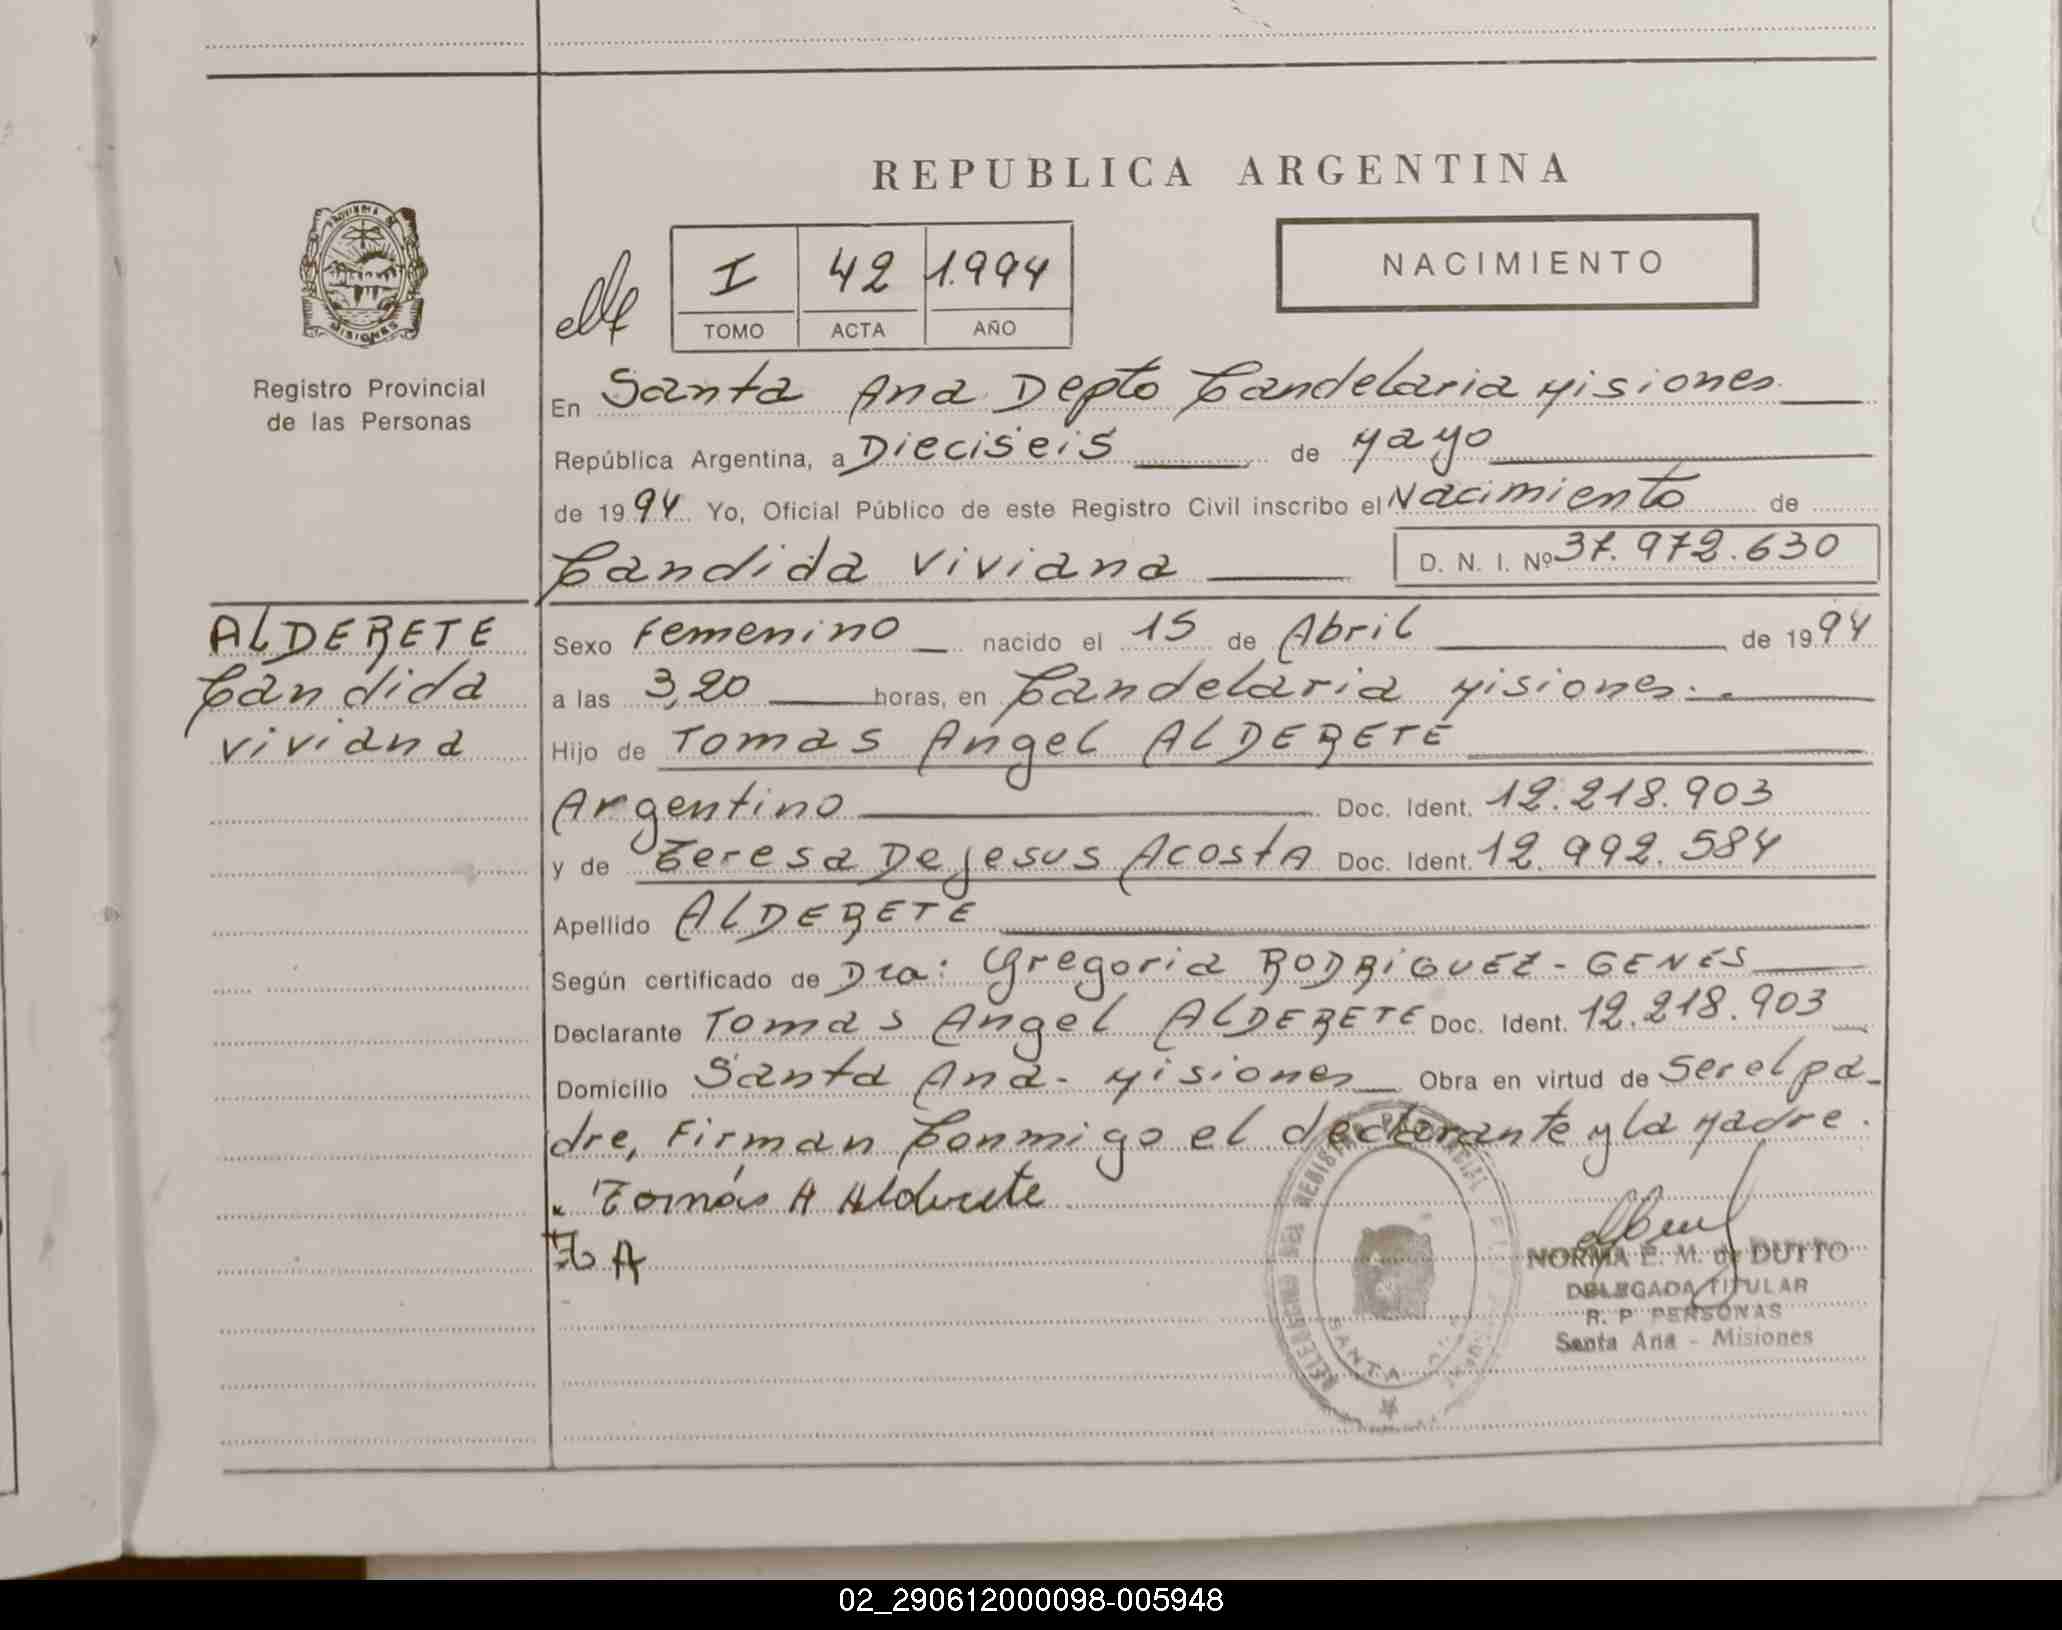 REPUBLICA ARGENTINA
PROVINCIA DE
MISIONES
Registro Provincial
de las Personas
I 42 1.994
TOMO ACTA AÑO
NACIMIENTO
En Santa Ana Depto Candelaria Misiones
República Argentina, a Dieciseis de Mayo
de 1994 Yo, Oficial Público de este Registro Civil inscribo el Nacimiento de
Candida Viviana D. N. I. Nº 37.972.630
ALDERETE
Candida
Viviana
Sexo Femenino nacido el 15 de Abril de 1994
a las 3,20 horas, en Candelaria Misiones.
Hijo de Tomas Angel ALDERETE
Argentino Doc. Ident. 12.218.903
y de Teresa De Jesus Acosta Doc. Ident. 12.992.584
Apellido ALDERETE
Según certificado de Dra: Gregoria RODRIGUEZ - GENES
Declarante Tomas Angel ALDERETE Doc. Ident. 12.218.903
Domicilio Santa Ana - Misiones Obra en virtud de Ser el pa-
dre, Firman Conmigo el declarante y la Madre.
Tomás A Alderete
T A
SANTA
NORMA E. M. de DUTTO
DELEGADA TITULAR
R. P. PERSONAS
Santa Ana - Misiones
02_290612000098-005948